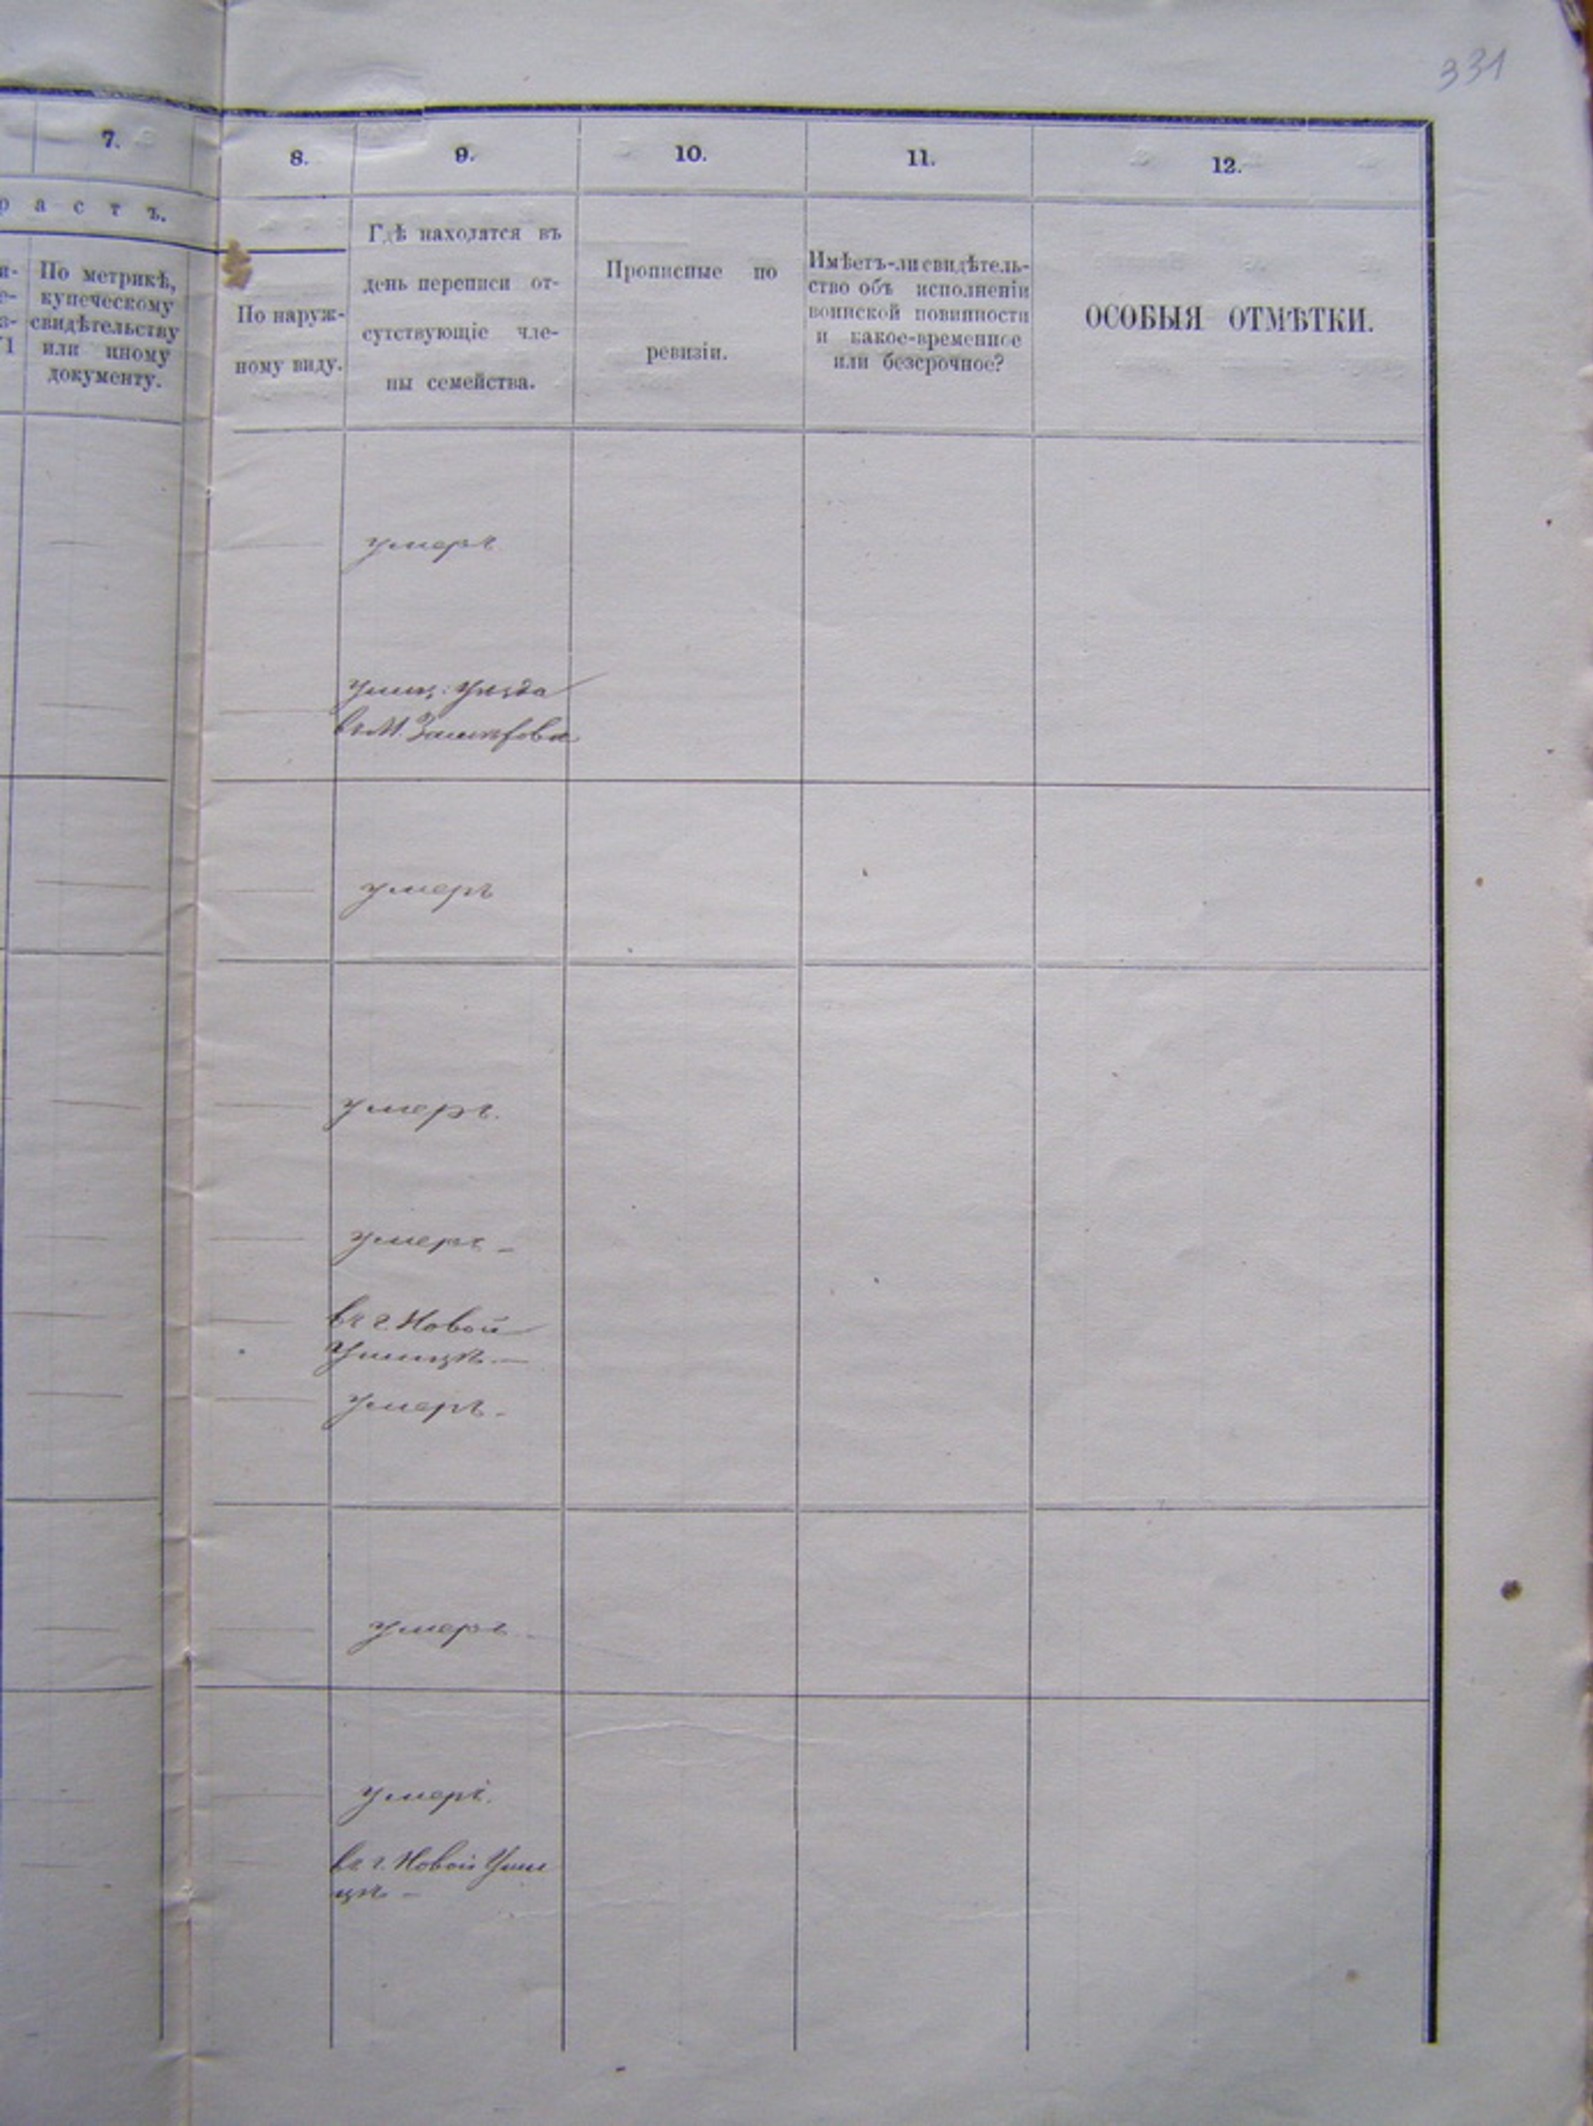 331
7.
8.
9.
10.
11.
12.
р а с т ъ.
По метрикѣ,
купеческому
свидѣтельству
или иному
документу.
По наруж-
ному виду.
Гдѣ находятся въ
день переписи от-
сутствующіе чле-
ны семейства.
Прописные по
ревизіи.
Имѣетъ-ли свидѣтель-
ство объ исполненіи
воинской повинности
и какое-временное
или безсрочное?
ОСОБЫЯ ОТМѢТКИ.
умеръ
Ушиц: Уѣзда
въ М.
умеръ
умеръ.
умеръ -
въ г. Новой
Ушицѣ. -
умеръ -
умеръ -
умеръ.
въ г. Новой Уши
цѣ -